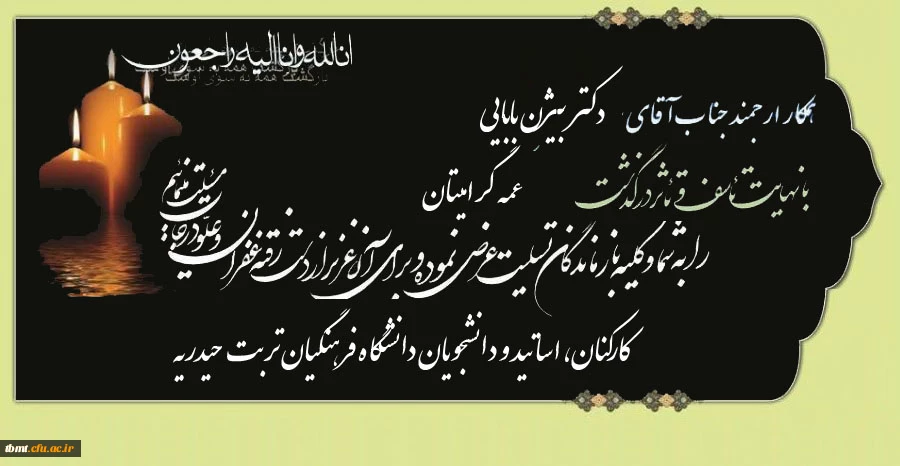 انا لله و انا الیه راجعون
بازگشت همه به سوی اوست
همکار ارجمند جناب آقای دکتر بیژن بابایی
با نهایت تأسف و تأثر درگذشت عمه گرامیتان
را به شما و کلیه بازماندگان تسلیت عرض نموده و برای آن عزیز از دست رفته غفران و علو درجات مسئلت می‌نمائیم
کارکنان، اساتید و دانشجویان دانشگاه فرهنگیان تربت حیدریه
tbmt.cfu.ac.ir